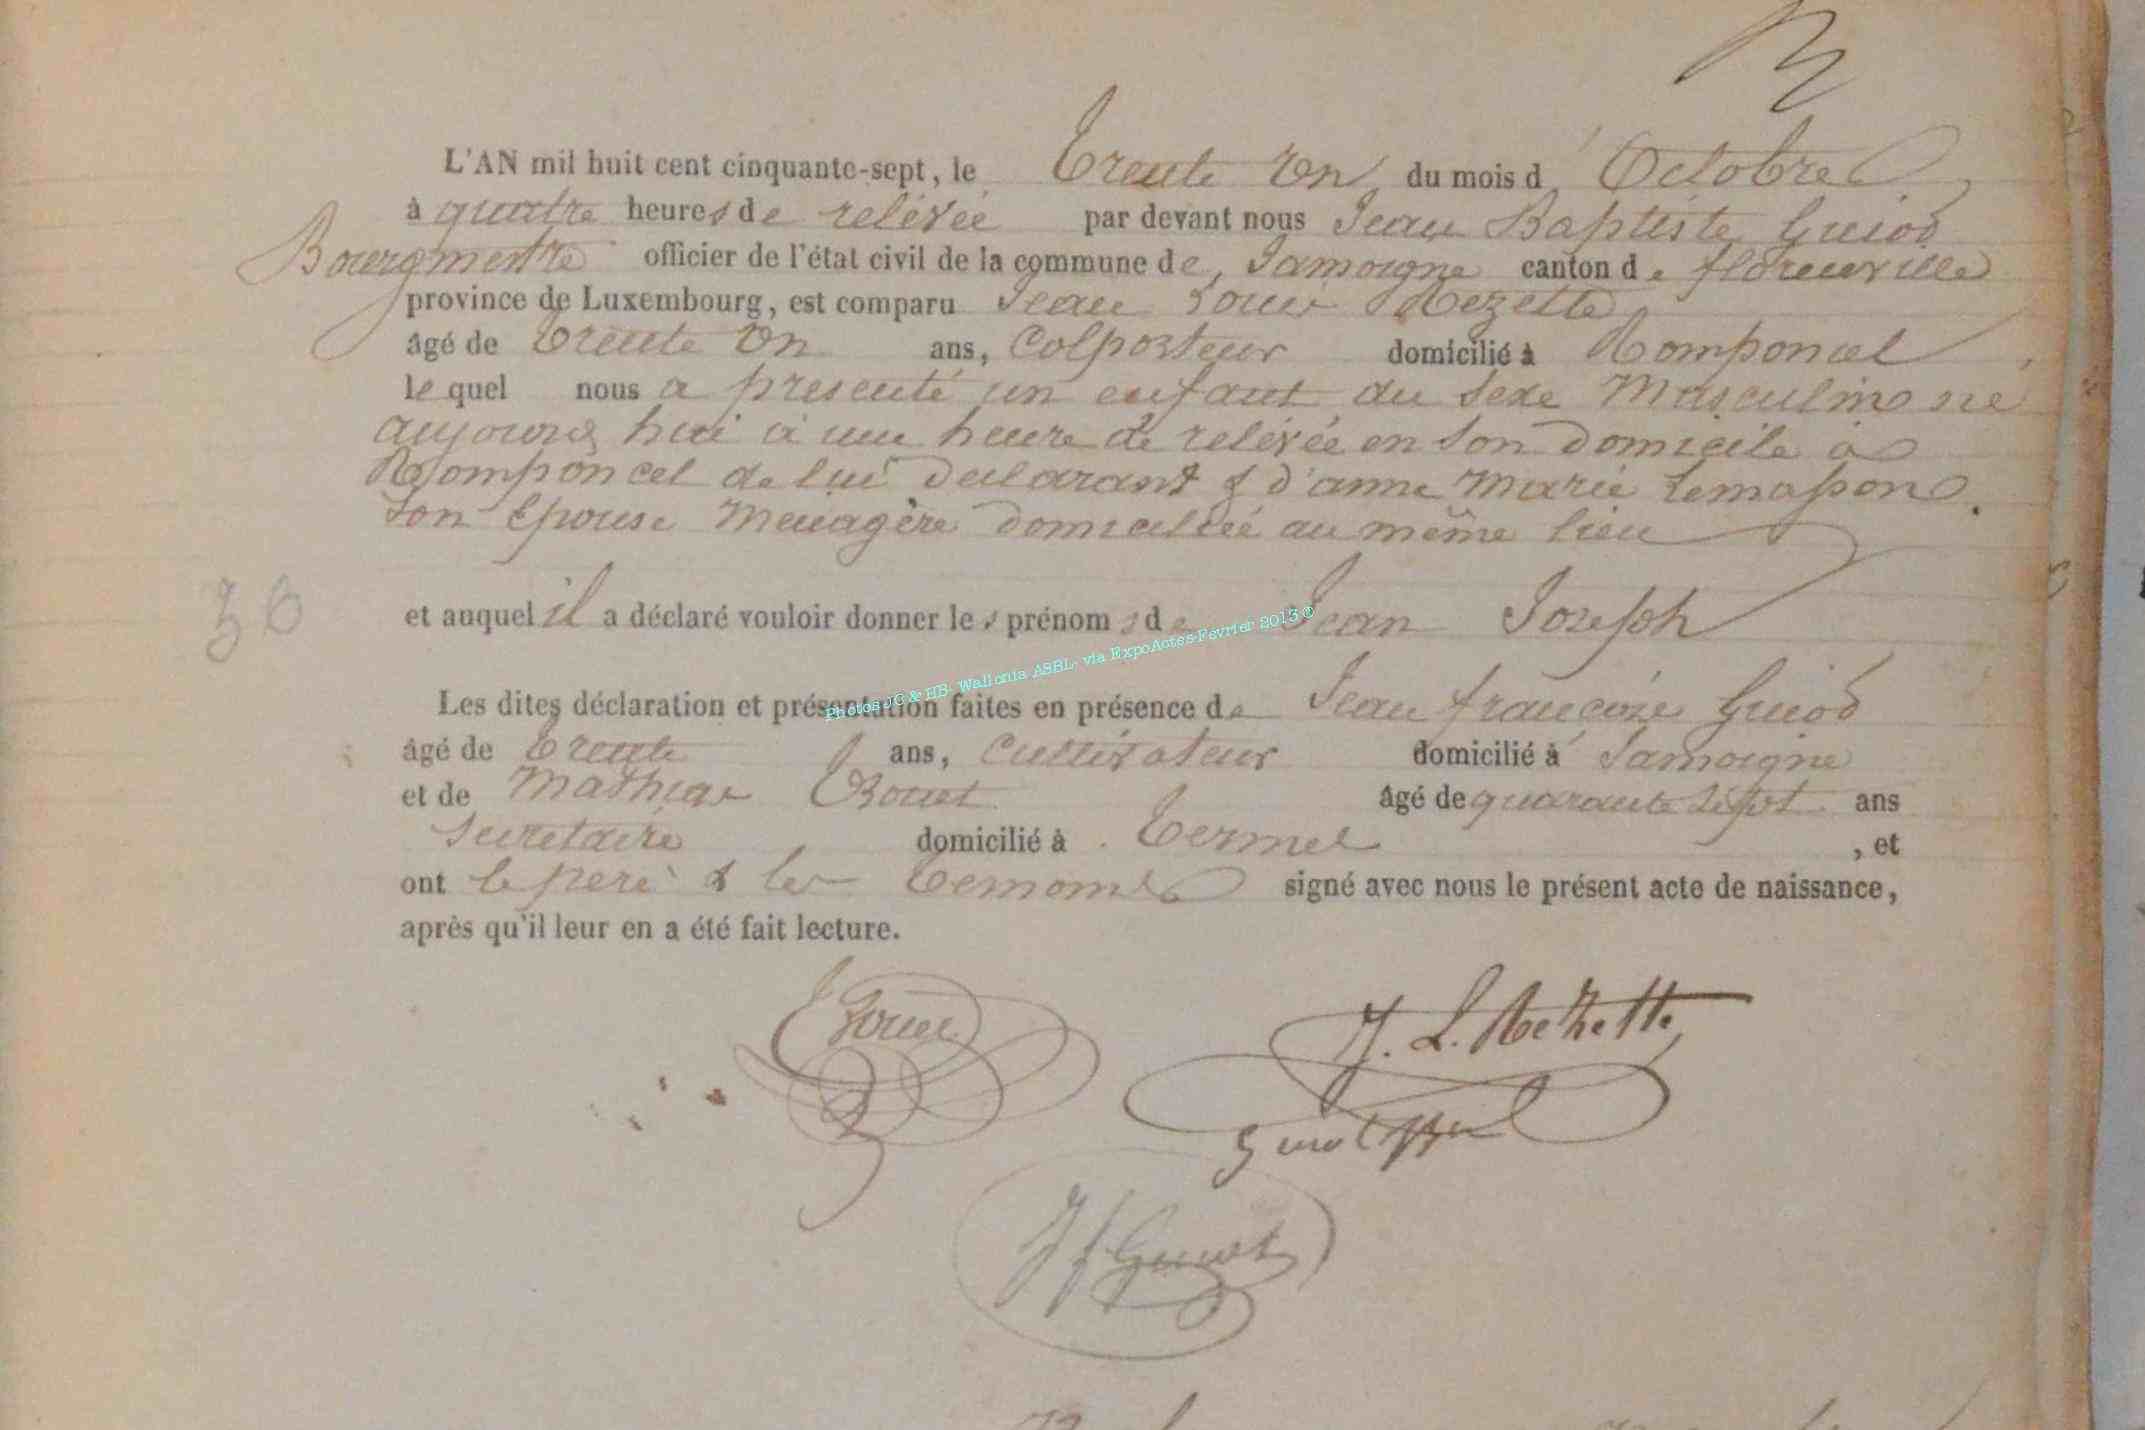 L'AN mil huit cent cinquante-sept, le Trente un du mois d'Octobre
à quatre heures de relévée par devant nous Jean Baptiste Guiod
Bourgmestre officier de l'état civil de la commune de Jamoigne canton de florenville
province de Luxembourg, est comparu Jean Louis Rezette
âgé de Trente un ans, Colporteur domicilié à Romponcel
lequel nous a presenté un enfant du sexe Masculin né
aujourd hui à une heure de relévée en son Domicile à
Romponcel de lui Declarant & d'anne Marie Lemasson
son Epouse Menagère Domiciliée au même lieu
36
et auquel il a déclaré vouloir donner les prénoms de Jean Joseph
Les dites déclaration et présentation faites en présence de Jean françois Guiod
âgé de Trente ans, Cultivateur domicilié à Jamoigne
et de Mathias Bouet âgé de quarante sept ans
secretaire domicilié à Termel , et
ont le pere & les Temoins signé avec nous le présent acte de naissance,
après qu'il leur en a été fait lecture.
J. L. Rezette
J f Guiot
Photos JC & HB- Wallonia ASBL- via ExpoActes-Fevrier 2013 ®